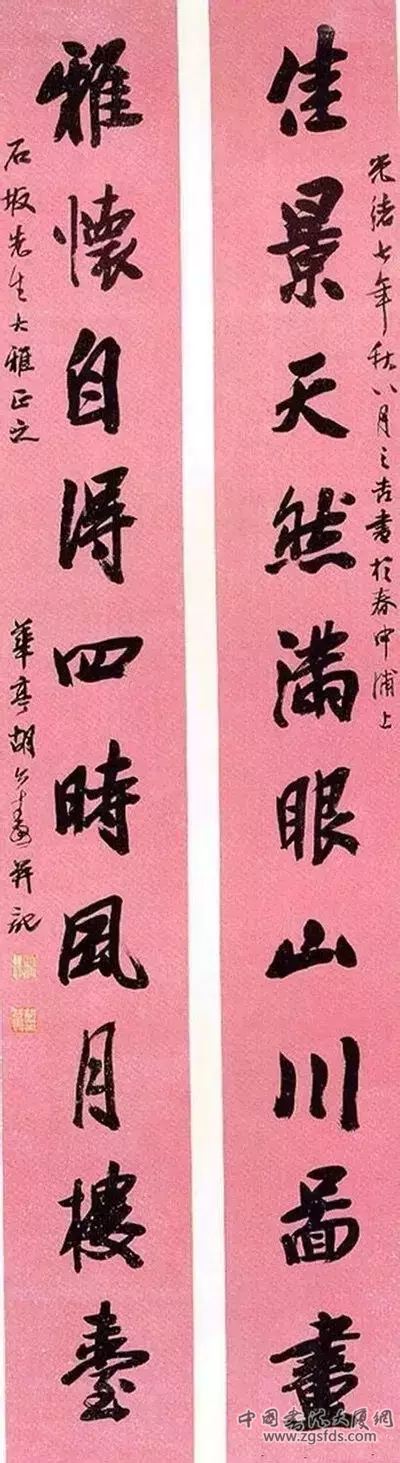 光緒七年秋八月之吉書於春申浦上
佳景天然滿眼山川圖畫
雅懷自得四時風月樓臺
石坂先生大雅正之
華亭胡公壽并記
中國書法大厦網
www.zgsfds.com